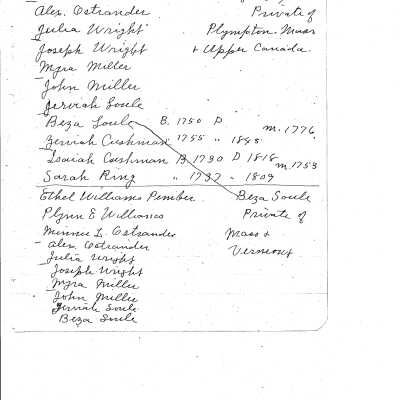 Alex. Ostrander Private of
Julia Wright Plympton. Mass
Joseph Wright + Upper Canada.
Myra Miller
John Miller
Zerviah Soule
Beza Soule B. 1750 D m. 1776.
Zerviah Cushman " 1755 "
Isaiah Cushman B 1730 D 1818 m 1753
Sarah Ring " 1737 "
Ethel Williams Pember Beza Soule
Plynn E Williams Private of
Minnie L. Ostrander Mass +
Alex. Ostrander Vermont
Julia Wright
Joseph Wright
Myra Miller
John Miller
Zerviah Soule
Beza Soule